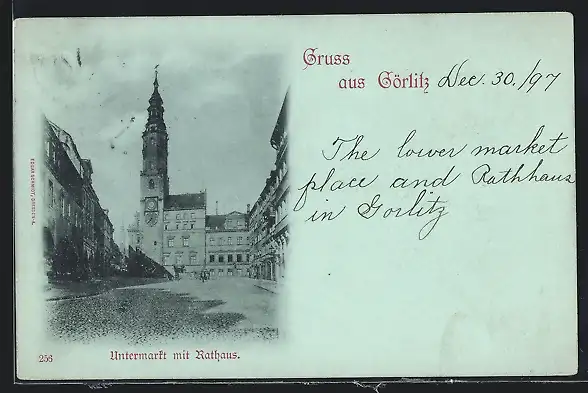 Gruss
aus Görlitz Dec. 30./97
The lower market
place and Rathhaus
in Gorlitz
EDGAR SCHMIDT, DRESDEN-A.
256
Untermarkt mit Rathaus.